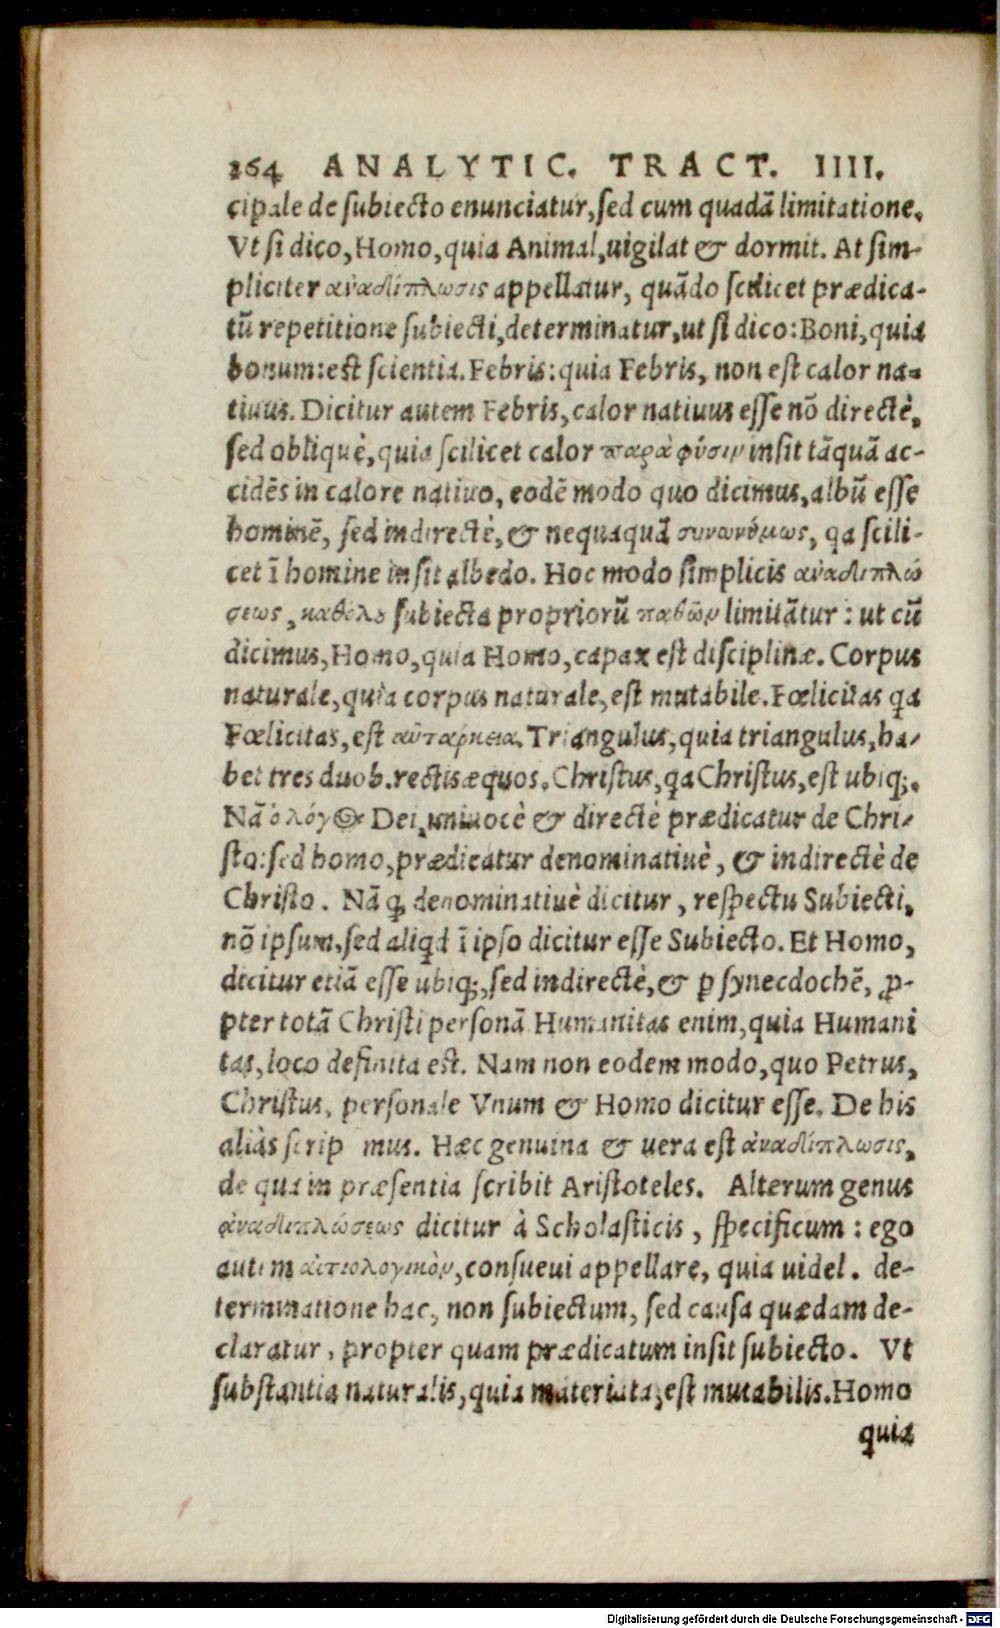 264 ANALYTIC. TRACT. IIII.
cipale de subiecto enunciatur, sed cum quadã limitatione.
Vt si dico, Homo, quia Animal, uigilat & dormit. At sim-
pliciter ἀναδίπλωσις appellatur, quãdo scilicet prædica-
tũ repetitione subiecti, determinatur, ut si dico: Boni, quia
bonum: est scientia. Febris: quia Febris, non est calor na-
tiuus. Dicitur autem Febris, calor natiuus esse nõ directè,
sed obliquè, quia scilicet calor παρὰ φύσιν insit tãquã ac-
cidẽs in calore natiuo, eodẽ modo quo dicimus, albũ esse
hominẽ, sed indirectè, & nequaquã συνωνύμως, qa scili-
cet ĩ homine insit albedo. Hoc modo simplicis ἀναδιπλώ
σεως, καθόλου subiecta propriorũ παθῶν limitãtur: ut cũ
dicimus, Homo, quia Homo, capax est disciplinæ. Corpus
naturale, quia corpus naturale, est mutabile. Fœlicitas qa
Fœlicitas, est αὐτάρκεια. Triangulus, quia triangulus, ha-
bet tres duob. rectis æquos. Christus, qa Christus, est ubiq;.
Nã ὁ λόγος Dei, uniuocè & directè prædicatur de Chri-
sto: sed homo, prædicatur denominatiuè, & indirectè de
Christo. Nã q̃ denominatiuè dicitur, respectu Subiecti,
nõ ipsum, sed aliqd ĩ ipso dicitur esse Subiecto. Et Homo,
dicitur etiã esse ubiq;, sed indirectè, & ꝑ synecdochẽ, ꝓ-
pter totã Christi personã Humanitas enim, quia Humani
tas, loco definita est. Nam non eodem modo, quo Petrus,
Christus, personale Vnum & Homo dicitur esse. De his
aliàs scrip mus. Hæc genuina & uera est ἀναδίπλωσις,
de qua in præsentia scribit Aristoteles. Alterum genus
ἀναδιπλώσεως dicitur à Scholasticis, specificum: ego
autem αἰτιολογικὸν, consueui appellare, quia uidel. de-
terminatione hac, non subiectum, sed causa quædam de-
claratur, propter quam prædicatum insit subiecto. Vt
substantia naturalis, quia materiata, est mutabilis. Homo
quia
Digitalisierung gefördert durch die Deutsche Forschungsgemeinschaft - DFG